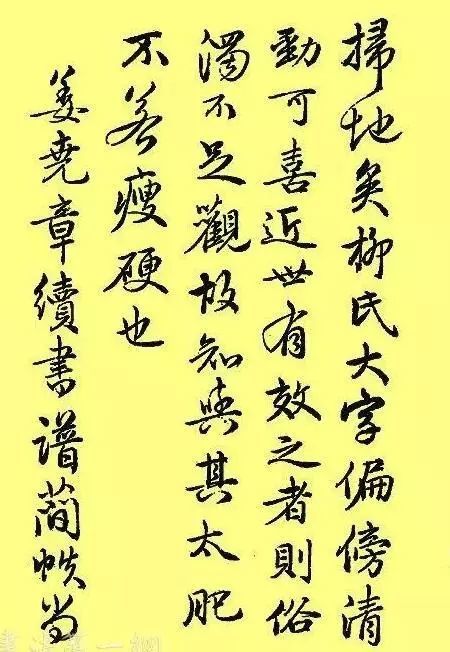 掃地矣柳氏大字偏傍清
勁可喜近世有效之者則俗
濁不足觀故知與其太肥
不若瘦硬也
姜堯章續書譜簡帙當